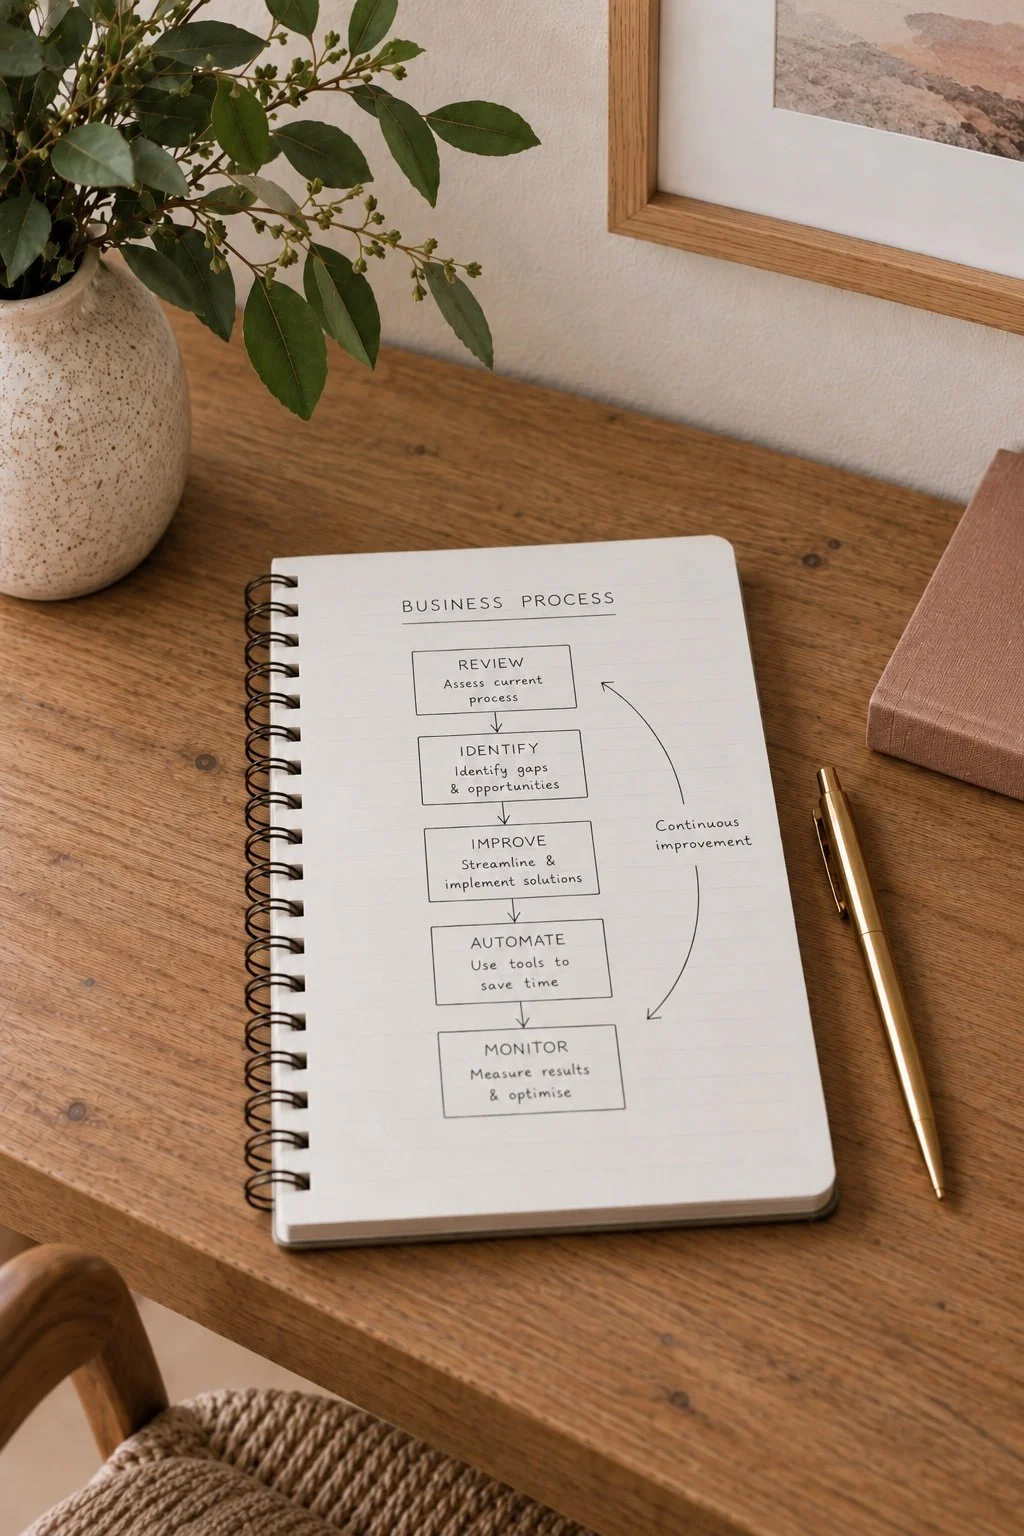 BUSINESS PROCESS
REVIEW
Assess current
process
IDENTIFY
Identify gaps
& opportunities
IMPROVE
Streamline &
implement solutions
AUTOMATE
Use tools to
save time
MONITOR
Measure results
& optimise
Continuous
improvement